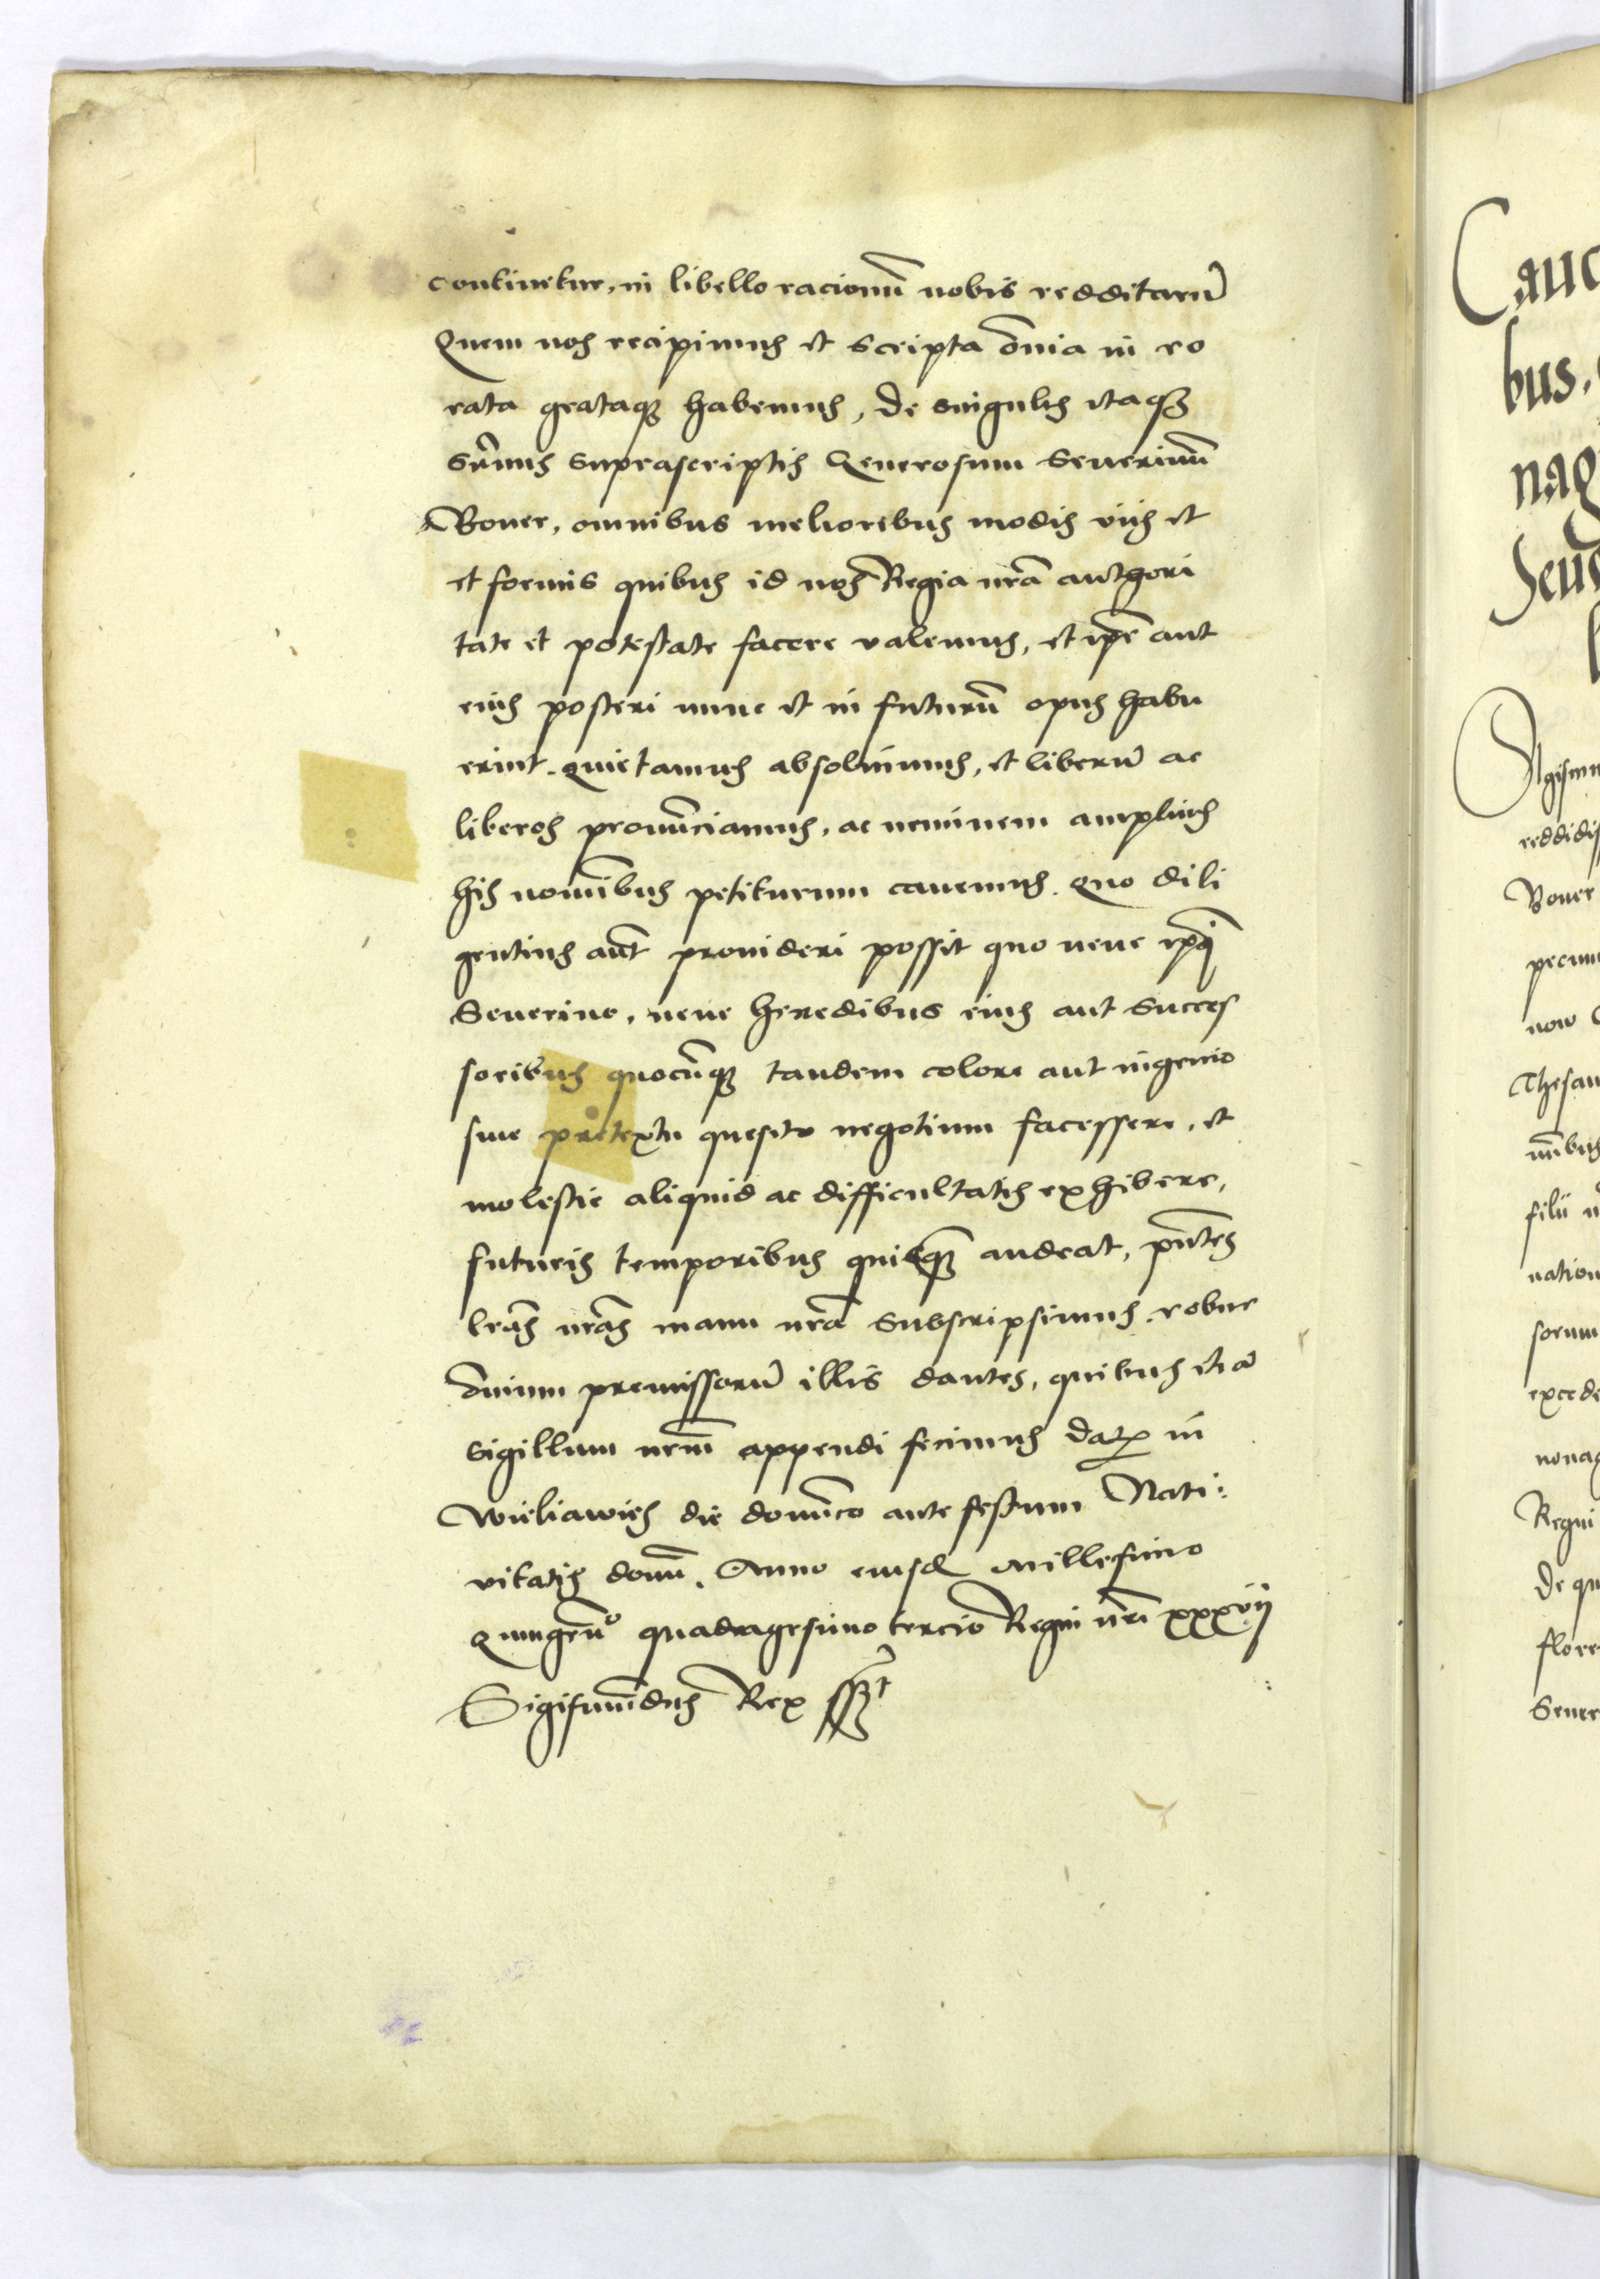 continetur, in libello racionū nobis redditarū
Quem nos recipimus et scripta ōnia in eo
rata grataqꝫ habemus, de singulis itaqꝫ
sūmis suprascriptis Generosum Seuerinū
Boner, omnibus melioribus modis viis et
et formis quibus id nos Regia nrā authori
tate et potestate facere valemus, et ipē aut
eius posteri nunc et in futurū opus habu
erint. quietamus absoluimus, et liberū ac
liberos pronūnciamus, ac neminem amplius
his nomībus petiturum cauemus. Quo dili
gentius aūt prouideri possit quo neue ipī
Seuerino, neue heredibus eius aut succes
soribus quocūqꝫ tandem colore aut ingenio
siue pretextu quesito negotium facessere, et
molestie aliquid ac difficultatis exhibere,
futuris temporibus quisqꝫ audeat, pn̄tes
lrās nrās manu nrā subscripsimus. robur
ōnium premissorū illis dantes, quibus etiā
sigillum nrm̄ appendi fecimus Datꝫ in
Wieliawies die domīco ante festum Nati:
vitatis domī. Anno eiusd millesimo
Quingen̄º quadragesimo tercio Regni nrī xxxvij
Sigismūndus Rex sszt
Cauc
bus.
nag
Seue
Sigism
reddidis
Boner
pecun
now
Thesau
nībus
filii n
nation
sorum
excede
nonag
Regni
De qu
flore
Seuer